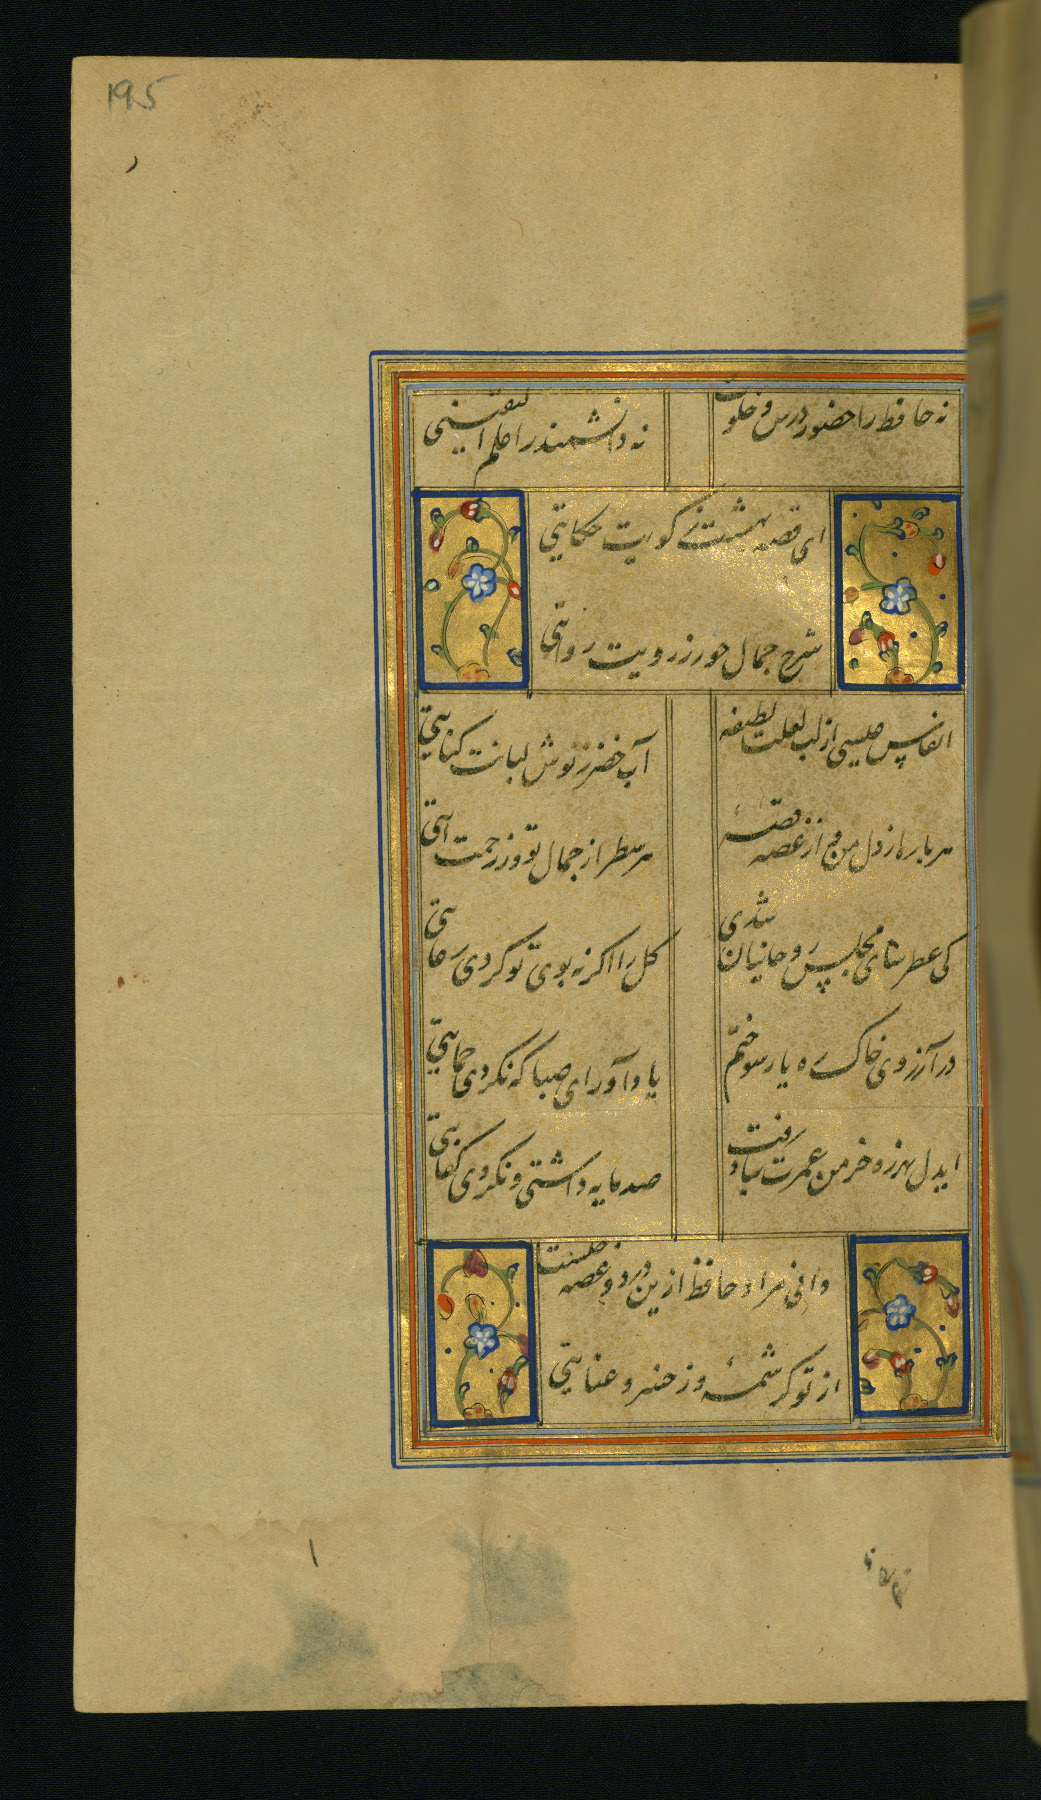 195
نه حافظ را حضور درس و خلوت
نه دانشمند را علم الیقینی
ای قصه بهشت ز کویت حکایتی
شرح جمال حور ز رویت روایتی
انفاس عیسی از لب لعلت لطیفه
آب خضر ز نوش لبانت کنایتی
هر پاره از دل من و از غصه قصهٔ
هر سطر از جمال تو وز رحمت آیتی
کی عطرسای مجلس روحانیان شدی
کل را اکر نه بوی تو کردی رعایتی
در آرزوی خاک ره یار سوختم
یاد آور ای صبا که نکردی حمایتی
ایدل بهرزه خرمن عمرت بباد رفت
صد مایه داشتی و نکردی کفایتی
دانی مراد حافظ ازین درد و غصه چیست
از تو کرشمهٔ و ز خسرو عنایتی